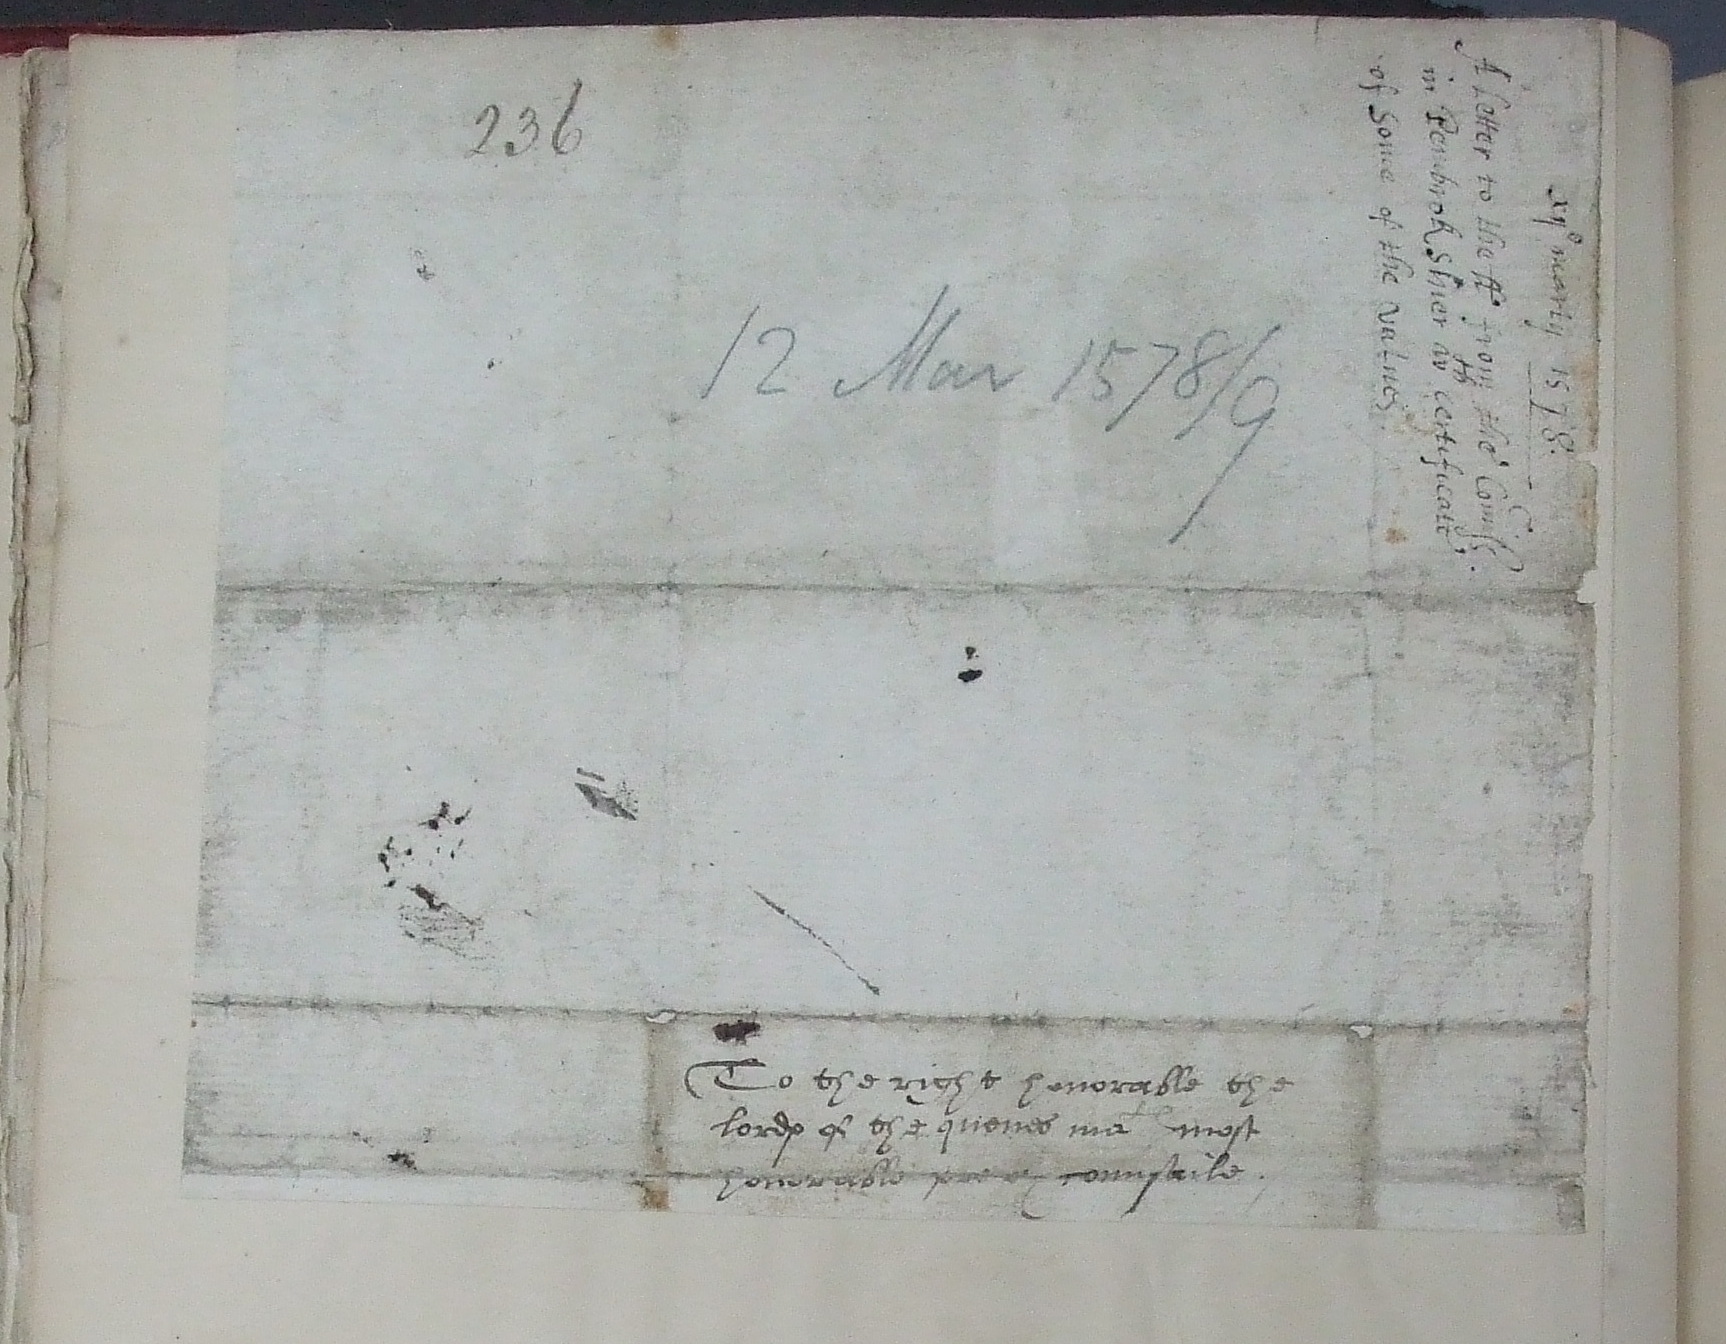 236
12 Mar 1578/9
xijº marcij 1578.
A letter to the ll from the Comiss.
in Penbrok shier wth certificate
of some of the values.
To the right honorable the
lordes of the quenes matis most
honorable prevy counsaile.